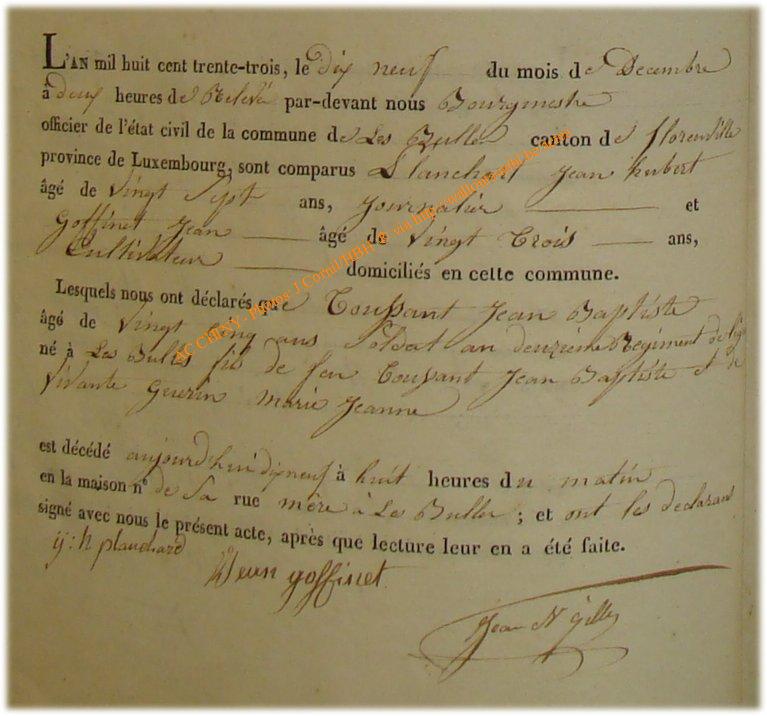 L'AN mil huit cent trente-trois, le dix neuf du mois de Decembre
à deux heures de Relevé par-devant nous Bourgmestre
officier de l'état civil de la commune de Les Bulles canton de florenville
province de Luxembourg, sont comparus Planchart Jean hubert
âgé de Vingt Sept ans, journalier et
Goffinet Jean âgé de Vingt Trois ans,
Cultivateur domiciliés en cette commune.
Lesquels nous ont déclarés que Toussant Jean Baptiste
âgé de Vingt cinq ans Soldat au deuxième Regiment de
né à Les Bulles fils de feu Toussant Jean Baptiste et de
Vivante Guerin Marie Jeanne
est décédé aujourd'hui dixneuf à huit heures du matin
en la maison n° de Sa rue mère à Les Bulles ; et ont les declarans
signé avec nous le présent acte, après que lecture leur en a été faite.
ij: h planchard
Jean goffinet
Jean N Gilles
ACCHISNY - Photos J.Cornil/BBH © via